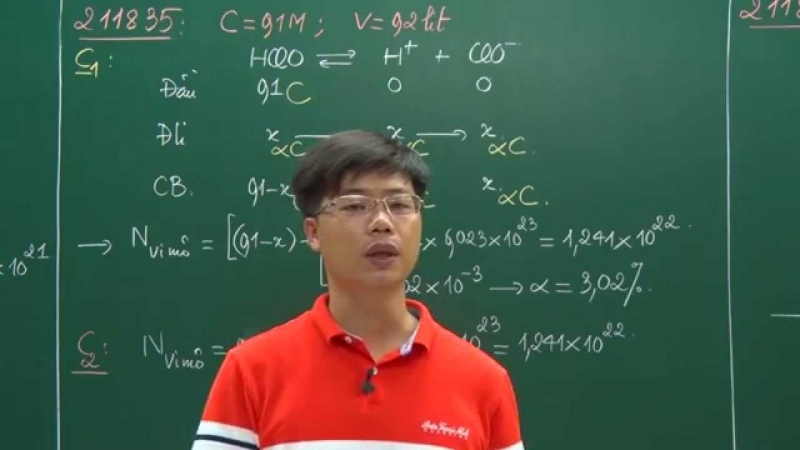 211835: C = 0,1M; V = 0,2 lít
C₁: HClO ⇌ H⁺ + ClO⁻
Đầu 0,1 C 0 0
Đli x αC x αC x αC.
CB. 0,1-x x. αC.
→ N vi mô = [(0,1-x) × 6,023×10²³ = 1,241×10²².
×10²¹
02×10⁻³ → α = 3,02%.
C₂: N vi mô = 10²³ = 1,241×10²².
211